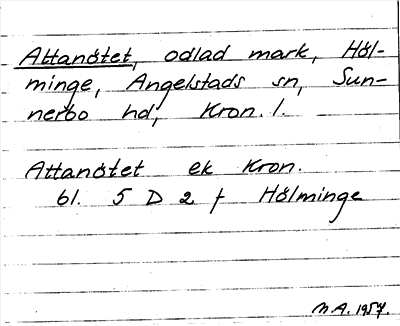 Attanötet, odlad mark, Höl-
minge, Angelstads sn, Sun-
nerbo hd, Kron. l.
Attanötet ek Kron.
bl. 5 D 2 f Hölminge
M.A. 1957.